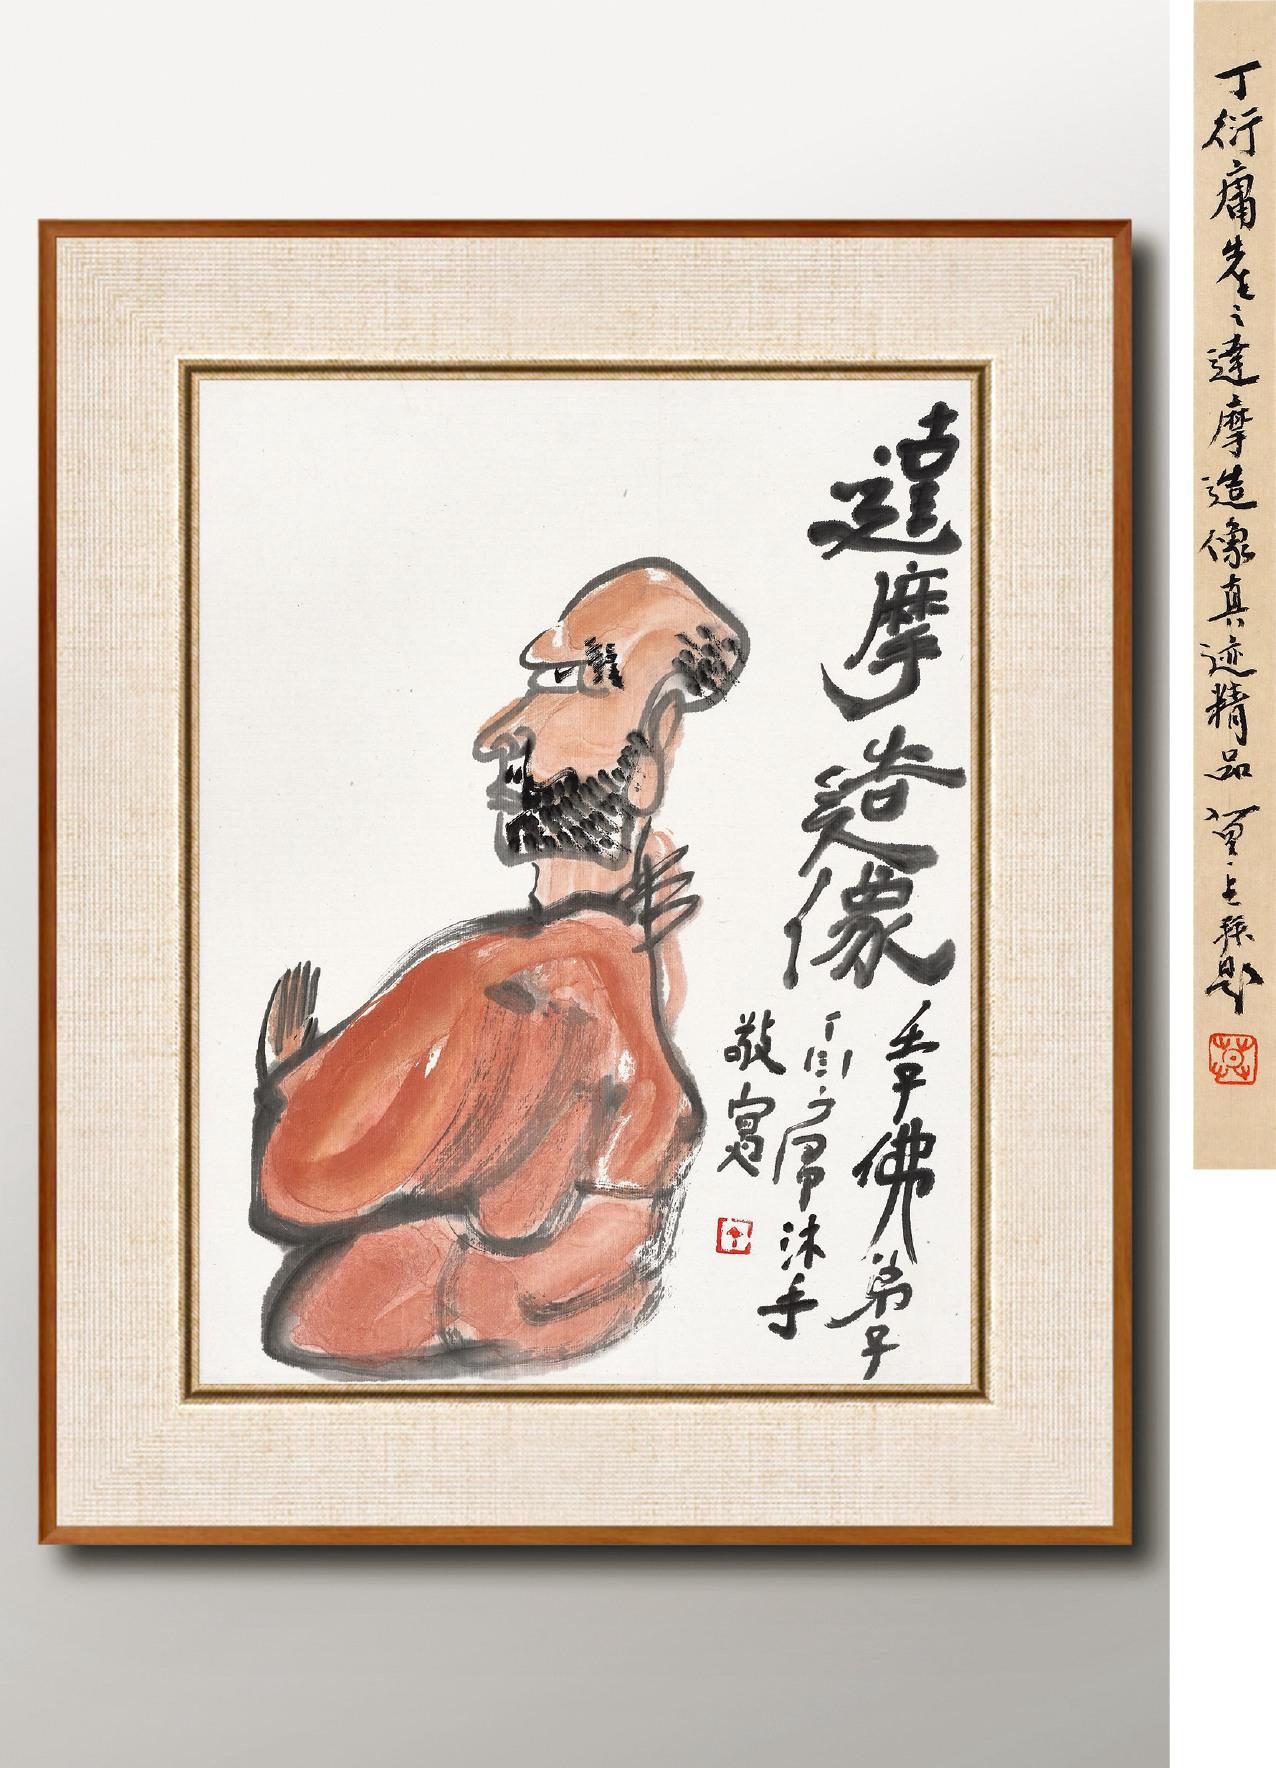 達摩造像
奉佛弟子
丁衍庸沐手
敬寫
丁衍庸先生之達摩造像真迹精品